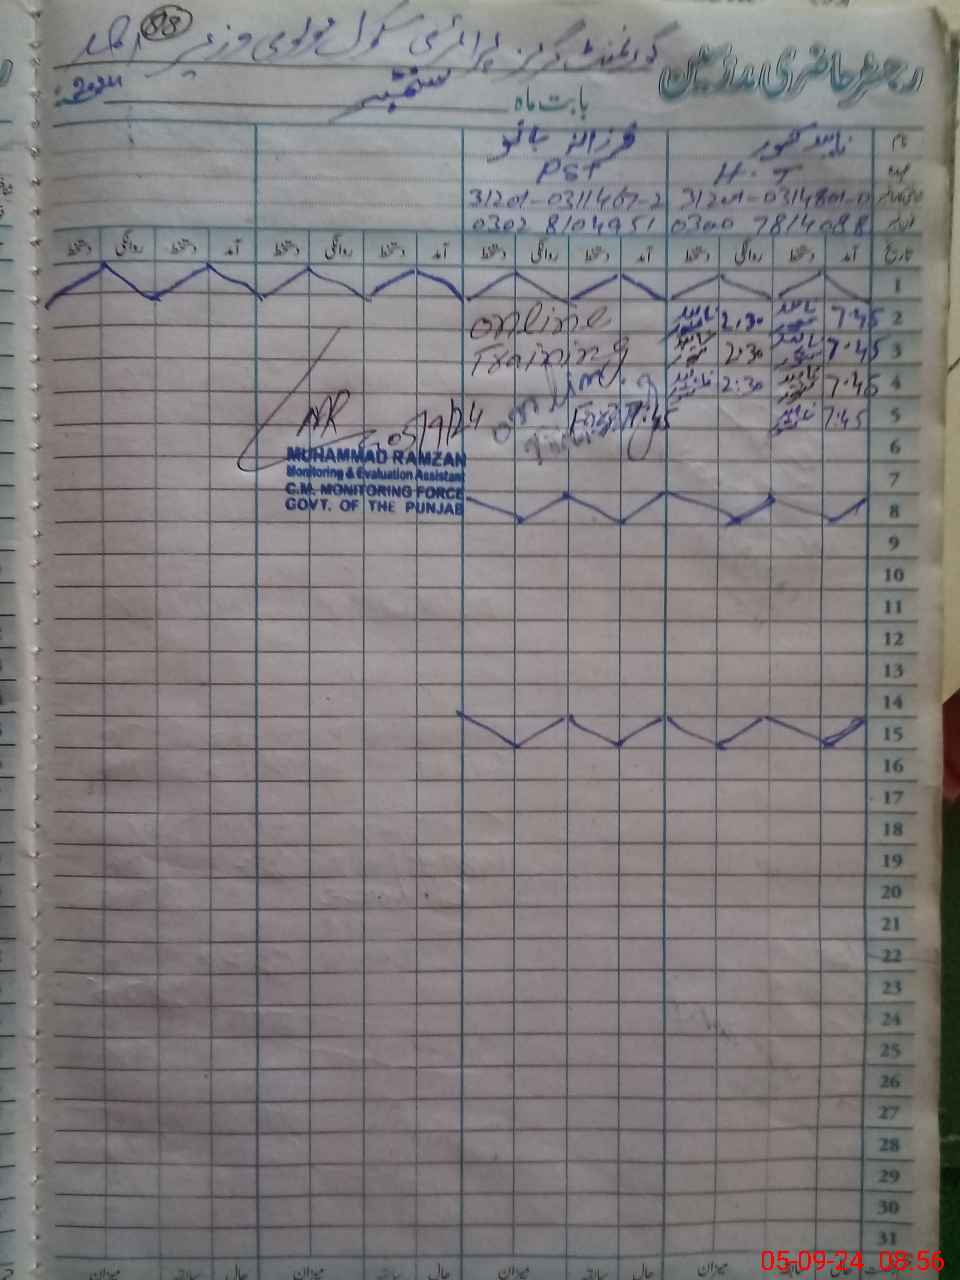 رجسٹر حاضری مدرسین گورنمنٹ گرلز پرائمری سکول 88
بابت ماہ ستمبر 2024
نام ناہید کشور فرزانہ بانو
عہدہ H.T PST
31201-0311467-2
0300 7814088 0302 8104951
تاریخ آمد دستخط روانگی دستخط آمد دستخط روانگی دستخط آمد دستخط روانگی دستخط آمد دستخط روانگی دستخط
1
2 7:45 2:30 online
3 7:45 2:30 Training
4 7:45 2:30
5 7:45 7:45
05/9/24
6
MUHAMMAD RAMZAN
Monitoring & Evaluation Assistant
7
C.M. MONITORING FORCE
8
GOVT. OF THE PUNJAB
9
10
11
12
13
14
15
16
17
18
19
20
21
22
23
24
25
26
27
28
29
30
31
حال سابقہ میزان حال سابقہ میزان حال سابقہ میزان
05-09-24 08:56